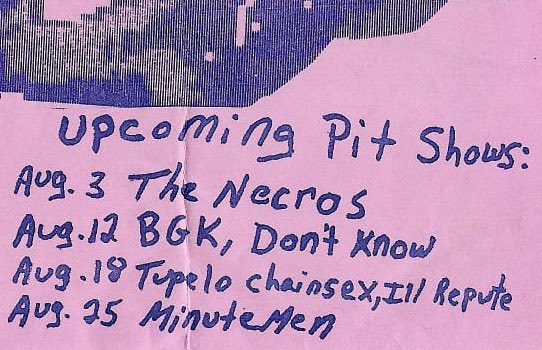 Upcoming Pit Shows:
Aug. 3 The Necros
Aug. 12 BGK, Don't Know
Aug. 18 Tupelo chainsex, Ill Repute
Aug. 25 MinuteMen